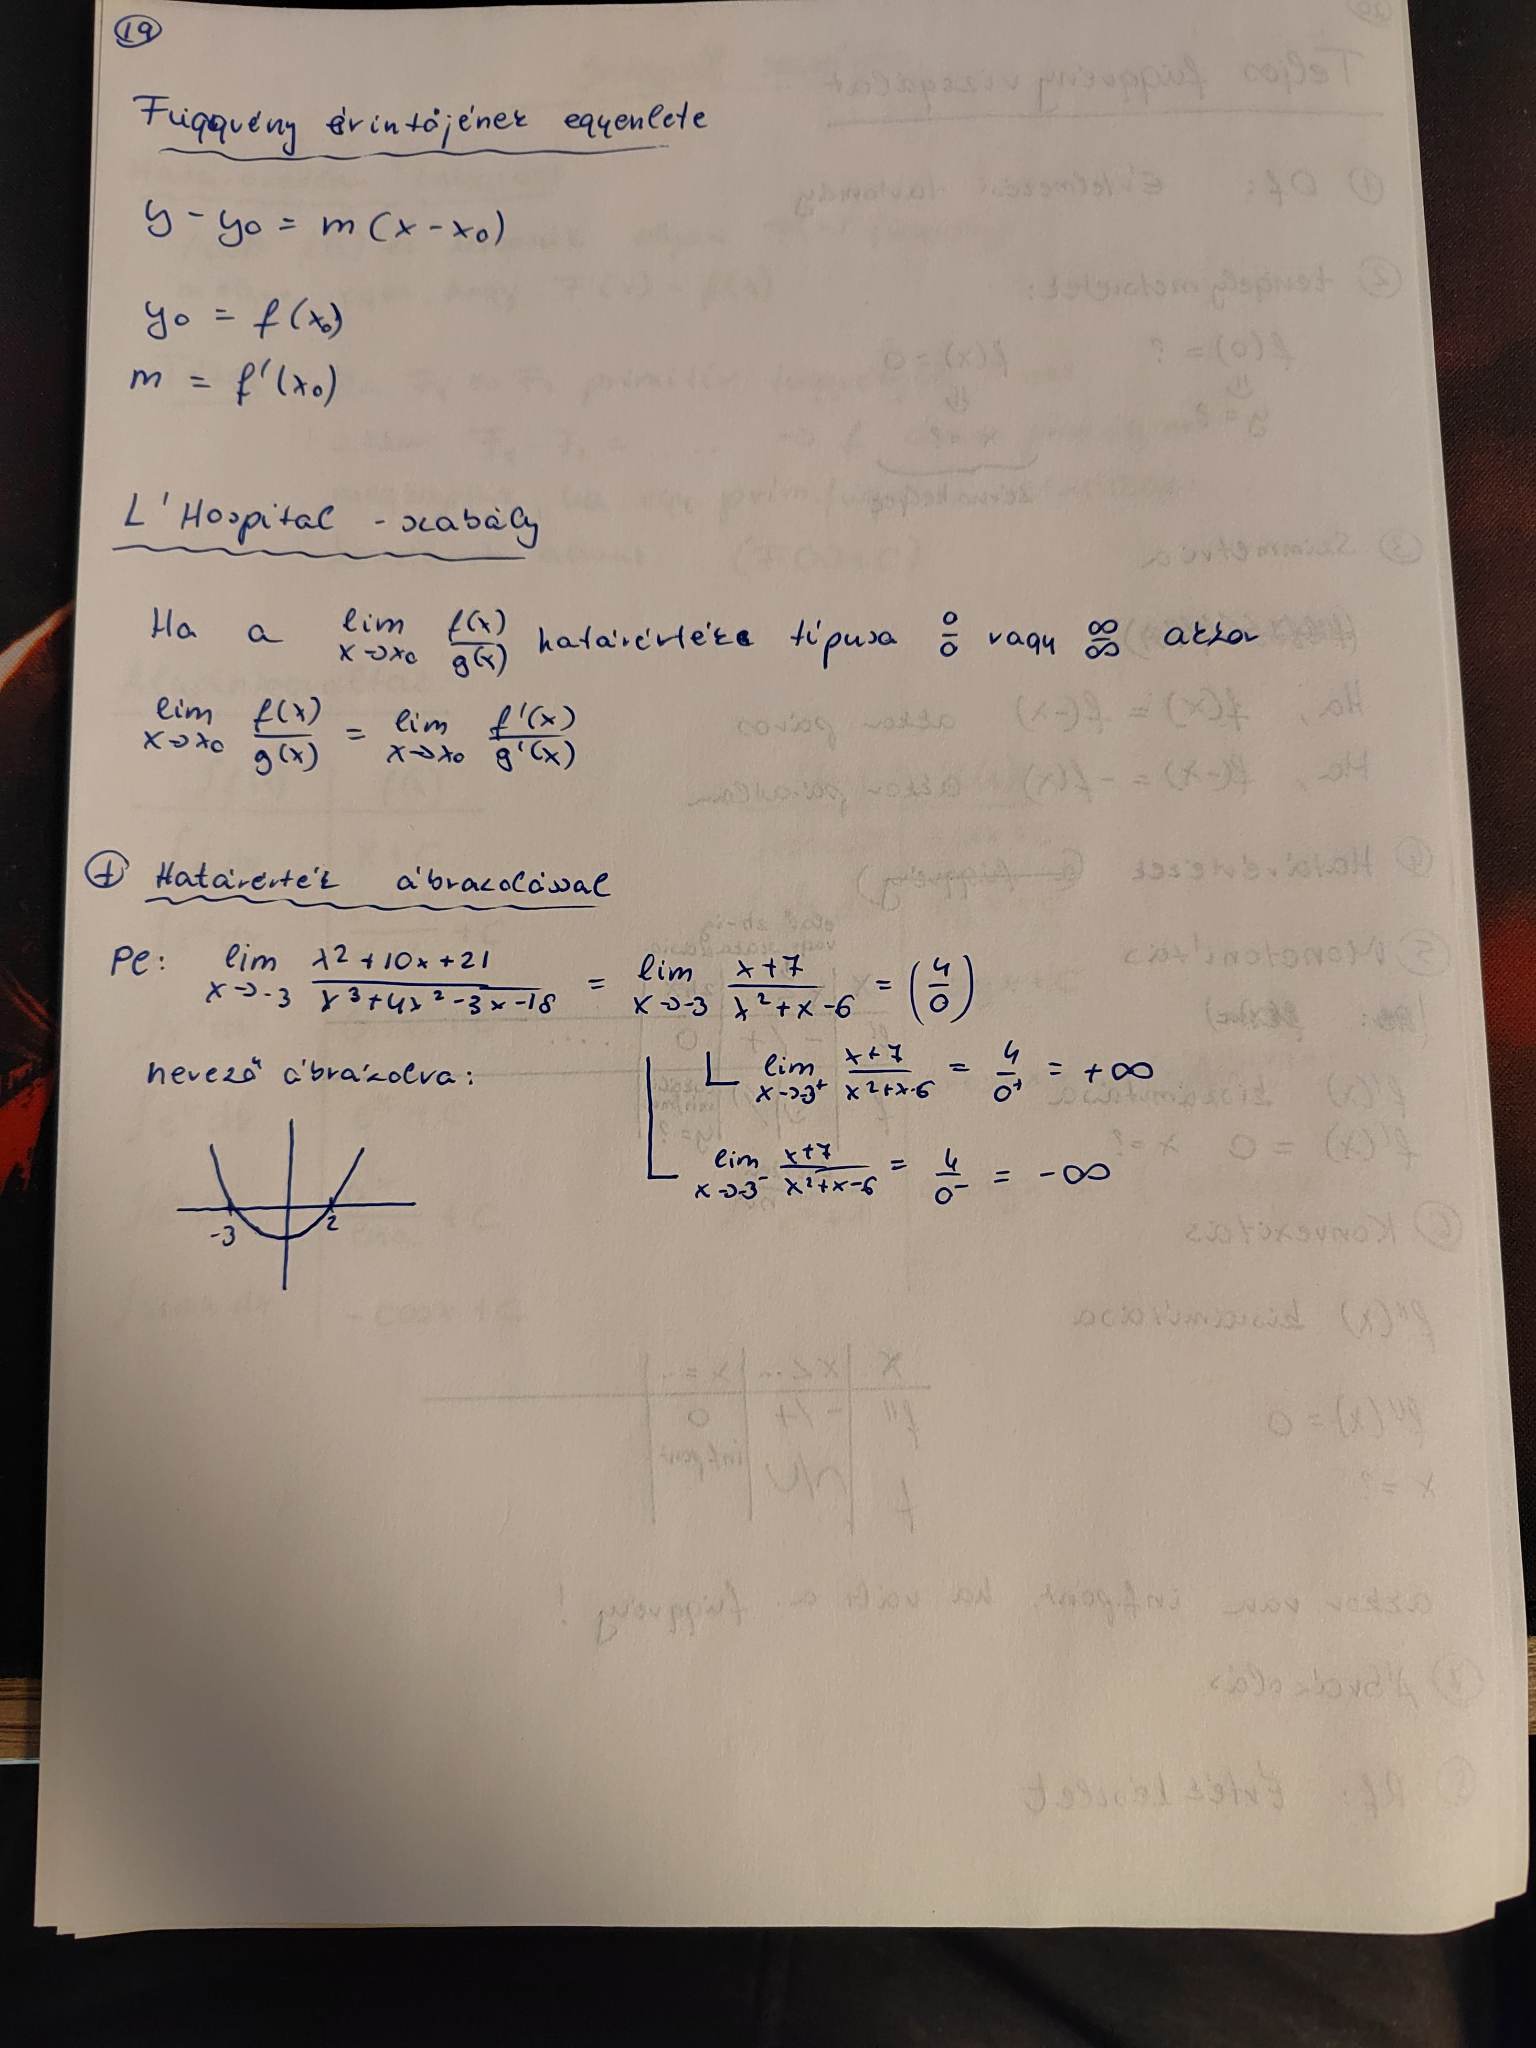 19
Függvény érintőjének egyenlete
y - y0 = m (x - x0)
y0 = f(x0)
m = f'(x0)
L'Hospital - szabály
Ha a lim x->x0 f(x)/g(x) határértéke típusa 0/0 vagy ∞/∞ akkor
lim x->x0 f(x)/g(x) = lim x->x0 f'(x)/g'(x)
+ Határérték ábrázolással
Pl: lim x->-3 x²+10x+21 / x³+4x²-3x-18 = lim x->-3 x+7 / x²+x-6 = (4/0)
nevező ábrázolva:
lim x->-3⁺ x+7 / x²+x-6 = 4/0⁺ = +∞
lim x->-3⁻ x+7 / x²+x-6 = 4/0⁻ = -∞
-3 2